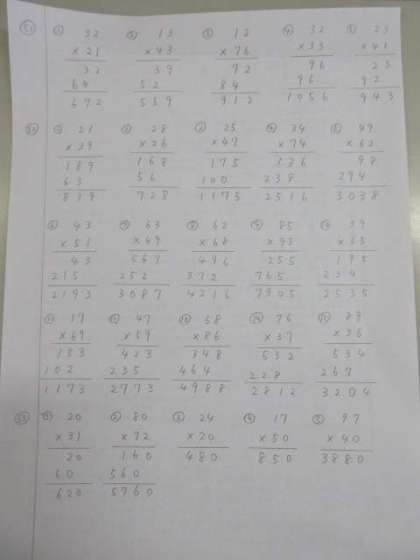 ① 32 ② 13 ③ 12 ④ 32 ⑤ 23
×21 ×43 ×76 ×33 ×41
32 39 72 96 23
64 52 84 96 92
672 559 912 1056 943
① 21 ② 28 ③ 25 ④ 34 ⑤ 49
×39 ×26 ×47 ×74 ×62
189 168 175 136 98
63 56 100 238 294
819 728 1175 2516 3038
⑥ 43 ⑦ 63 ⑧ 62 ⑨ 85 ⑩ 39
×51 ×49 ×68 ×93 ×65
43 567 496 255 195
215 252 372 765 234
2193 3087 4216 7905 2535
⑪ 17 ⑫ 47 ⑬ 58 ⑭ 76 ⑮ 89
×69 ×59 ×86 ×37 ×36
153 423 348 532 534
102 235 464 228 267
1173 2773 4988 2812 3204
① 20 ② 80 ③ 24 ④ 17 ⑤ 97
×31 ×72 ×20 ×50 ×40
20 160 480 850 3880
60 560
620 5760